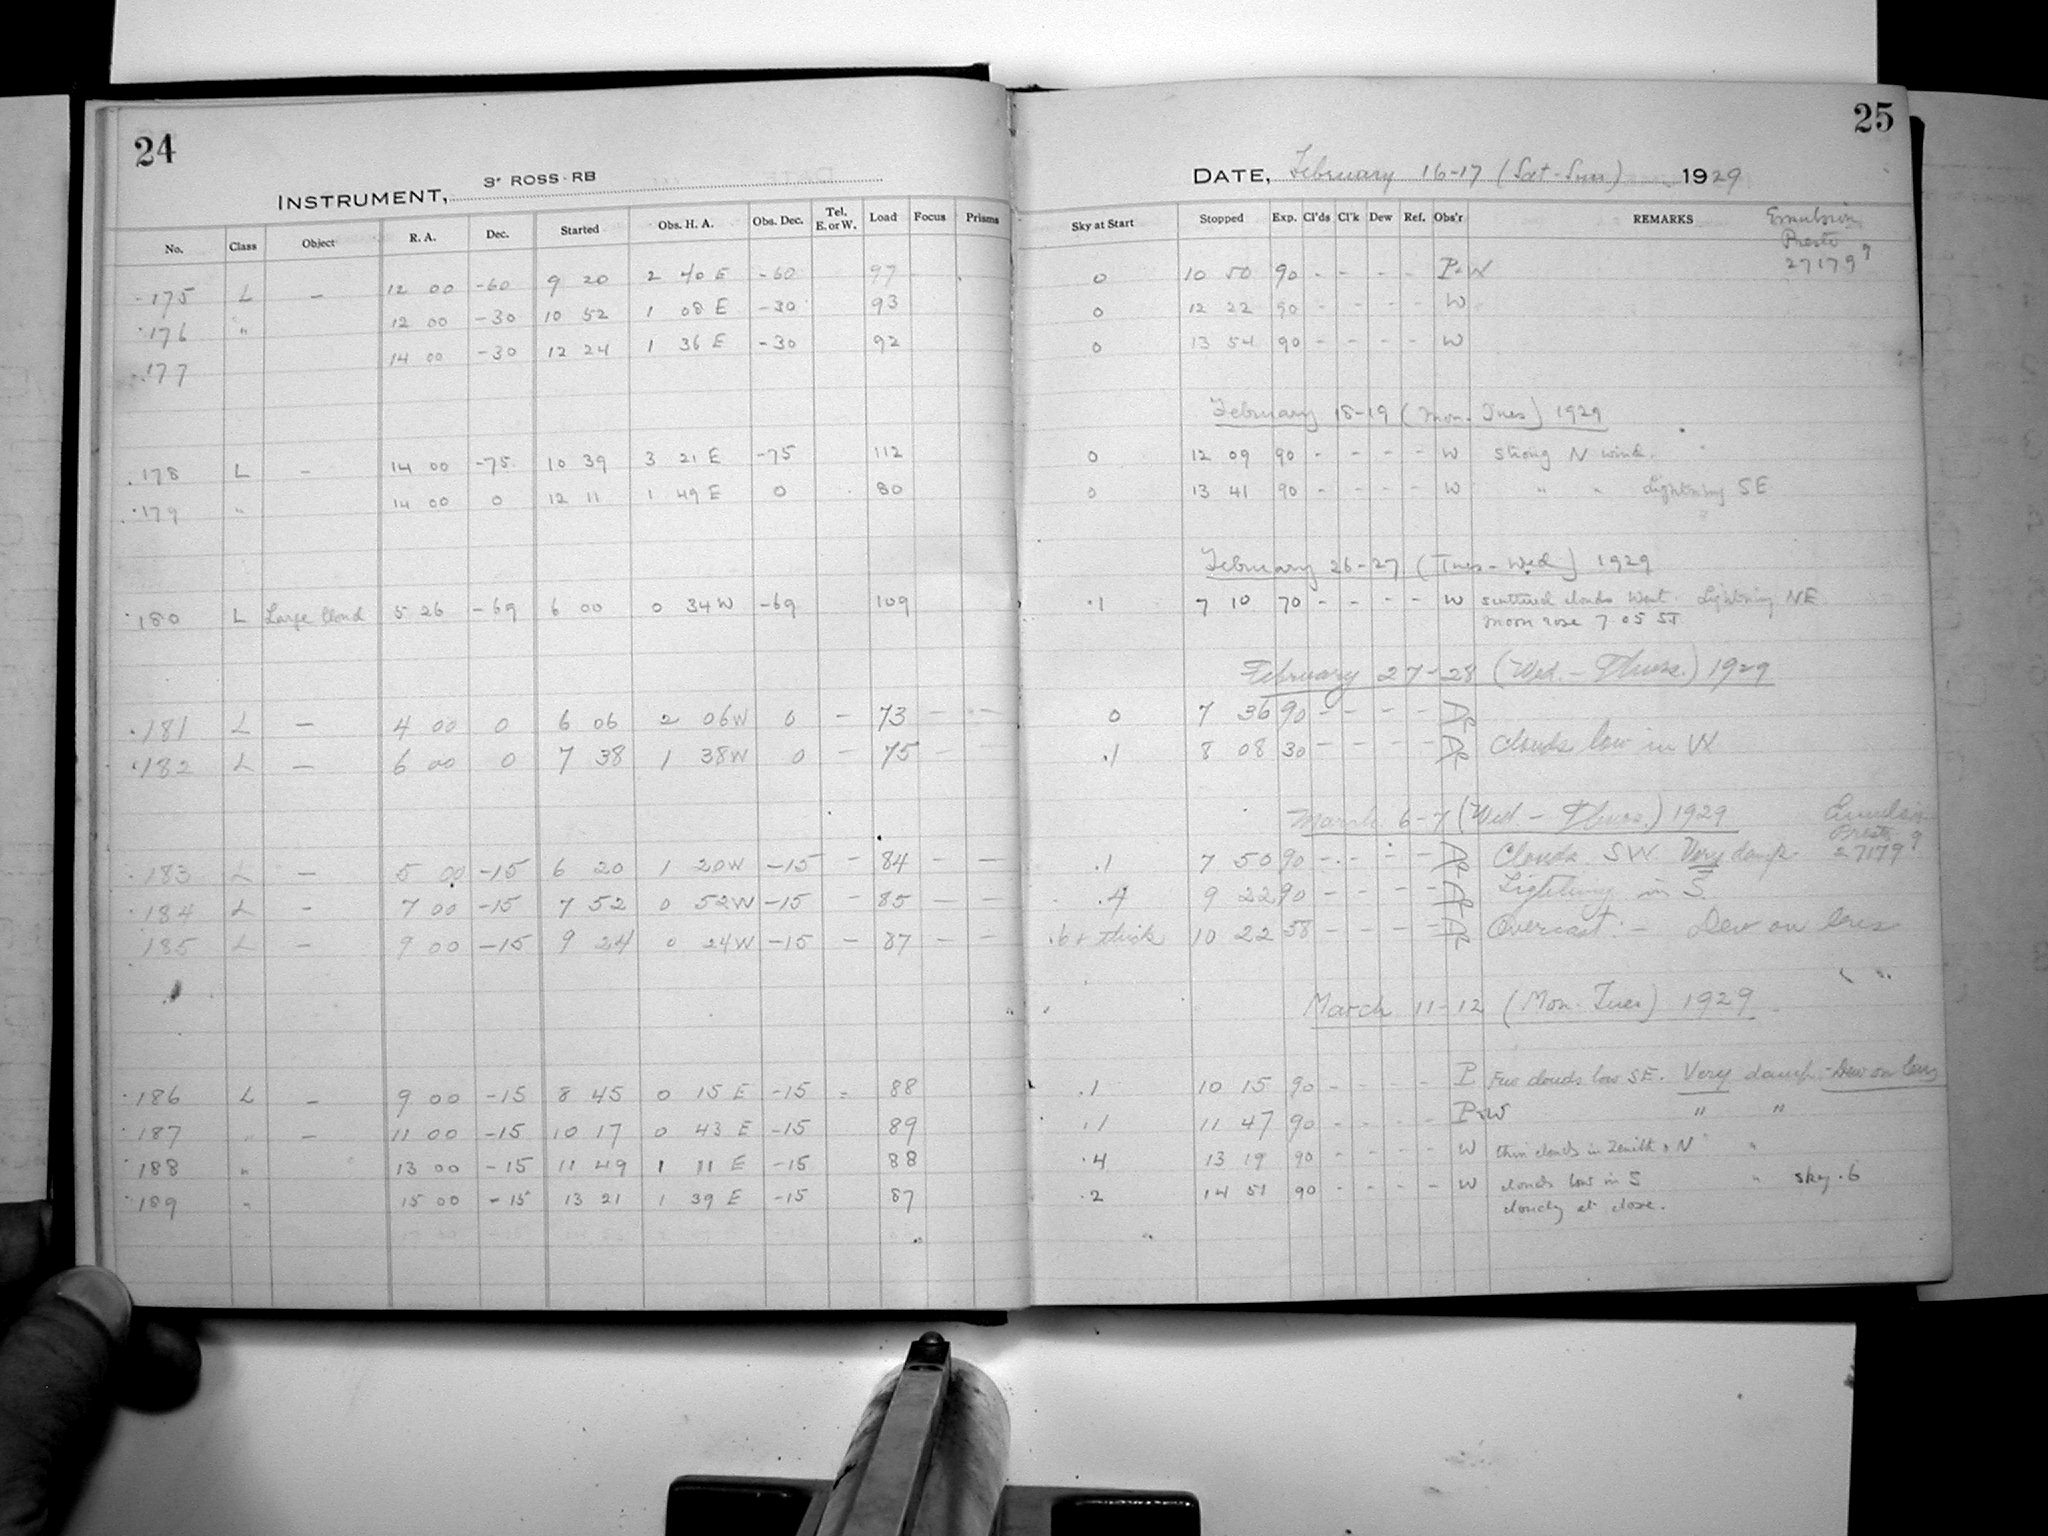 24
INSTRUMENT, 3" ROSS-RB
No. Class Object R. A. Dec. Started Obs. H. A. Obs. Dec. Tel. E. or W. Load Focus Prisms
175 L — 12 00 -60 9 20 2 40 E -60 97
176 " 12 00 -30 10 52 1 08 E -30 93
177 14 00 -30 12 24 1 36 E -30 92
178 L — 14 00 -75 10 39 3 21 E -75 112
179 " 14 00 0 12 11 1 49 E 0 80
180 L Large Cloud 5 26 -69 6 00 0 34 W -69 109
181 L — 4 00 0 6 06 2 06 W 0 — 73 — —
182 L — 6 00 0 7 38 1 38 W 0 — 75 —
183 L — 5 00 -15 6 20 1 20 W -15 — 84 — —
184 L — 7 00 -15 7 52 0 52 W -15 — 85 — —
185 L — 9 00 -15 9 24 0 24 W -15 — 87 — —
186 L — 9 00 -15 8 45 0 15 E -15 - 88
187 " — 11 00 -15 10 17 0 43 E -15 89
188 " 13 00 -15 11 49 1 11 E -15 88
189 " 15 00 -15 13 21 1 39 E -15 87
25
DATE, February 16-17 (Sat-Sun) 1929
Sky at Start Stopped Exp. Cl'ds Cl'k Dew Ref. Obs'r REMARKS
Emulsion
Presto
27179
0 10 50 90 - - - - P-W
0 12 22 90 - - - - W
0 13 54 90 - - - - W
February 18-19 (Mon-Tues) 1929
0 12 09 90 - - - - W Strong N wind.
0 13 41 90 - - - - W " " Lightning SE
February 26-27 (Tues-Wed) 1929
.1 7 10 70 - - - - W scattered clouds West. Lightning NE
moon rose 7 05 ST
February 27-28 (Wed.-Thurs.) 1929
0 7 36 90 - - - -
.1 8 08 30 - - - - Clouds low in W
March 6-7 (Wed-Thurs.) 1929
Emulsion
Presto
27179
.1 7 50 90 - - - - Clouds SW. Very damp.
.4 9 22 90 - - - - Lightning in S.
.6 + thick 10 22 58 - - - - Overcast. — Dew on lens
March 11-12 (Mon-Tues) 1929
.1 10 15 90 - - - - P Few clouds low SE. Very damp.-Dew on lens
.1 11 47 90 - - - - P-W " "
.4 13 19 90 - - - - W thin clouds in Zenith + N "
.2 14 51 90 - - - - W clouds low in S " sky .6
cloudy at close.